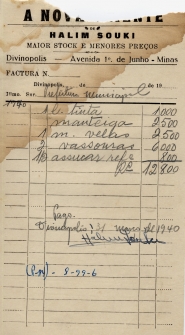 A NOVA
DE
HALIM SOUKI
MAIOR STOCK E MENORES PREÇOS
Divinopolis — Avenida 1º. de Junho - Minas
FACTURA N.
Divinopolis, de de 19
Illmo. Snr. Prefeitura Municipal
1940
1 tinta 1,000
1 manteiga 2500
1 m. vellas 2500
2 vassouras 6000
1 assucar ref. 800
12800
Pago
Divinopolis 31 março de 1940
Halim Souki
8-99-6